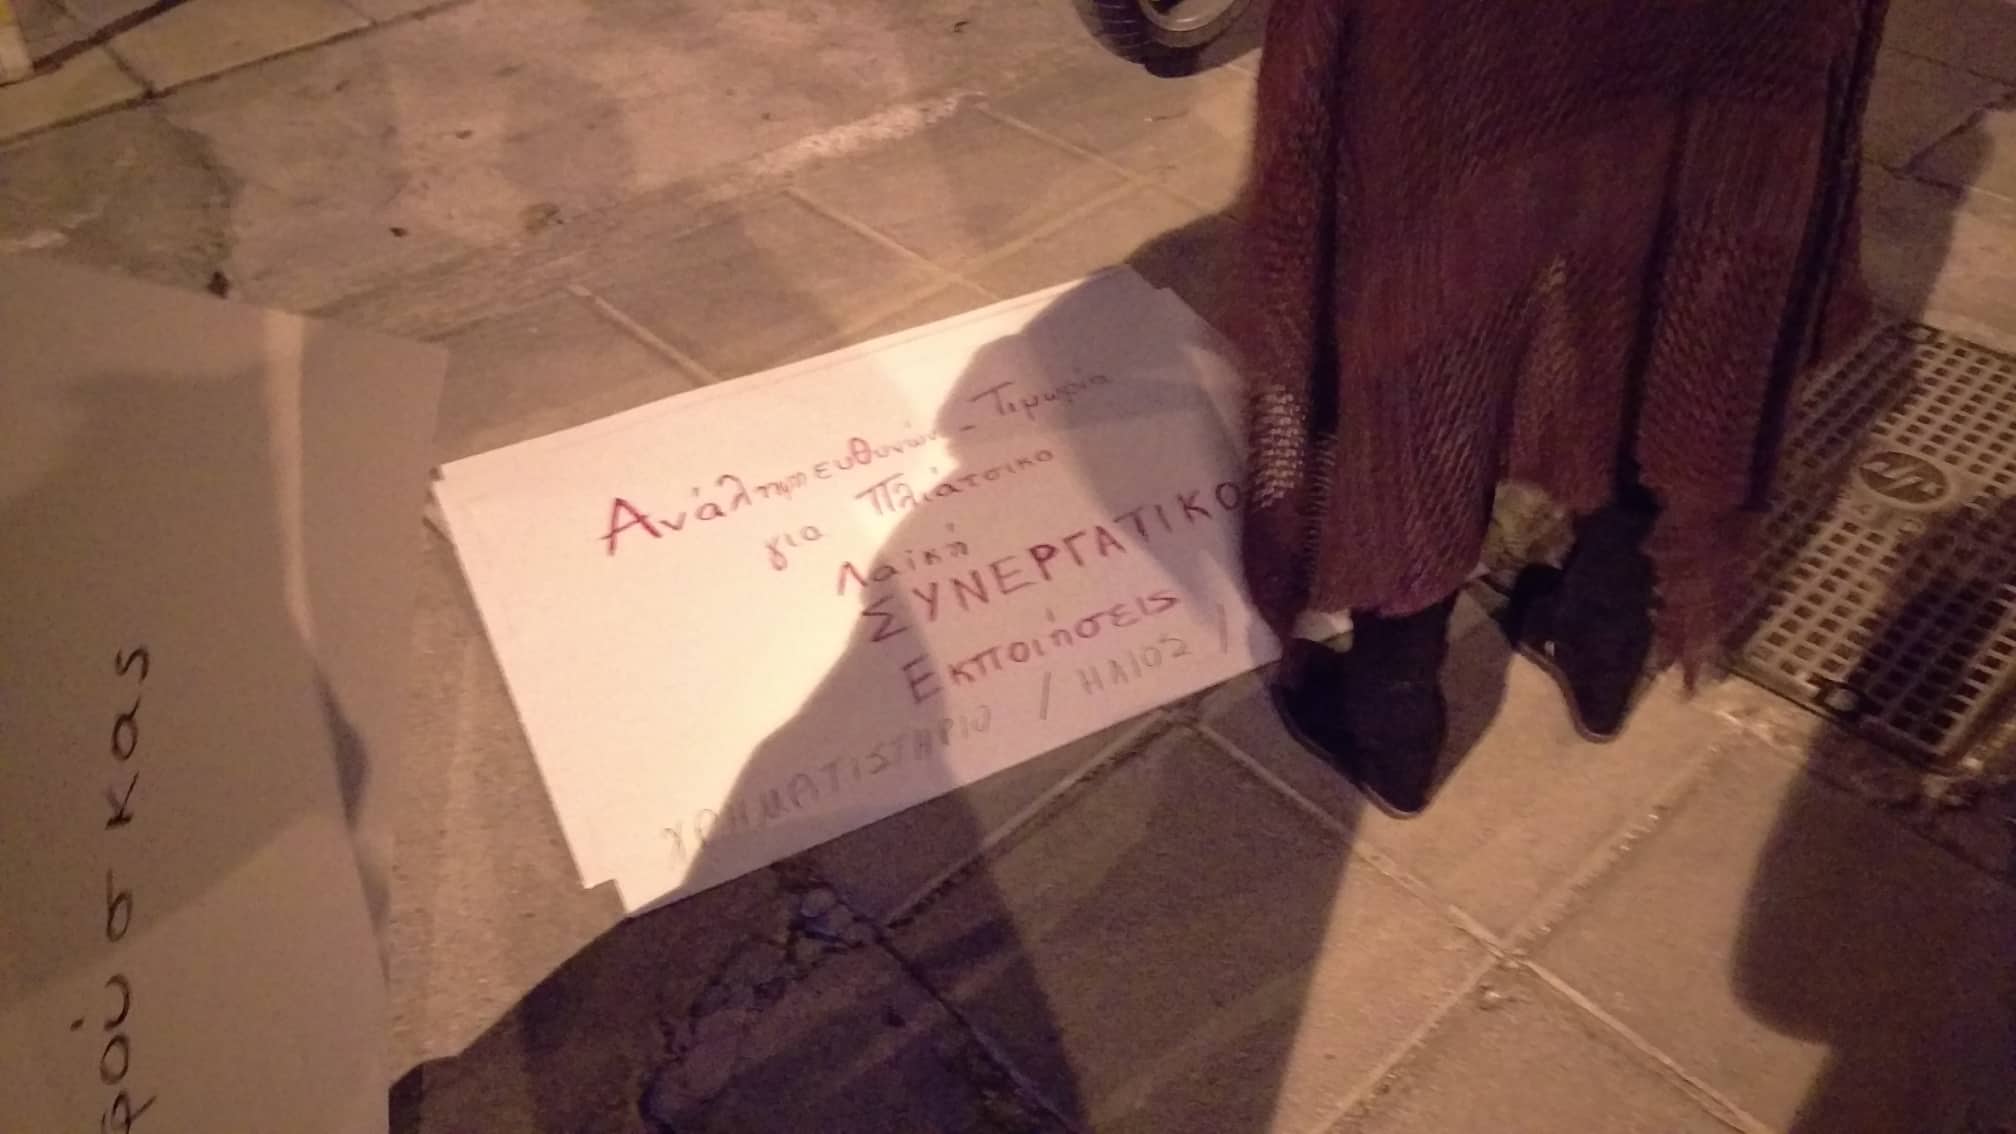 Ανάληψη ευθυνών - Τιμωρία
για Πλιάτσικο
Λαϊκή
ΣΥΝΕΡΓΑΤΙΚΟ
Εκποιήσεις
ΧΡΗΜΑΤΙΣΤΗΡΙΟ / ΗΛΙΟΣ /
ρούσκας